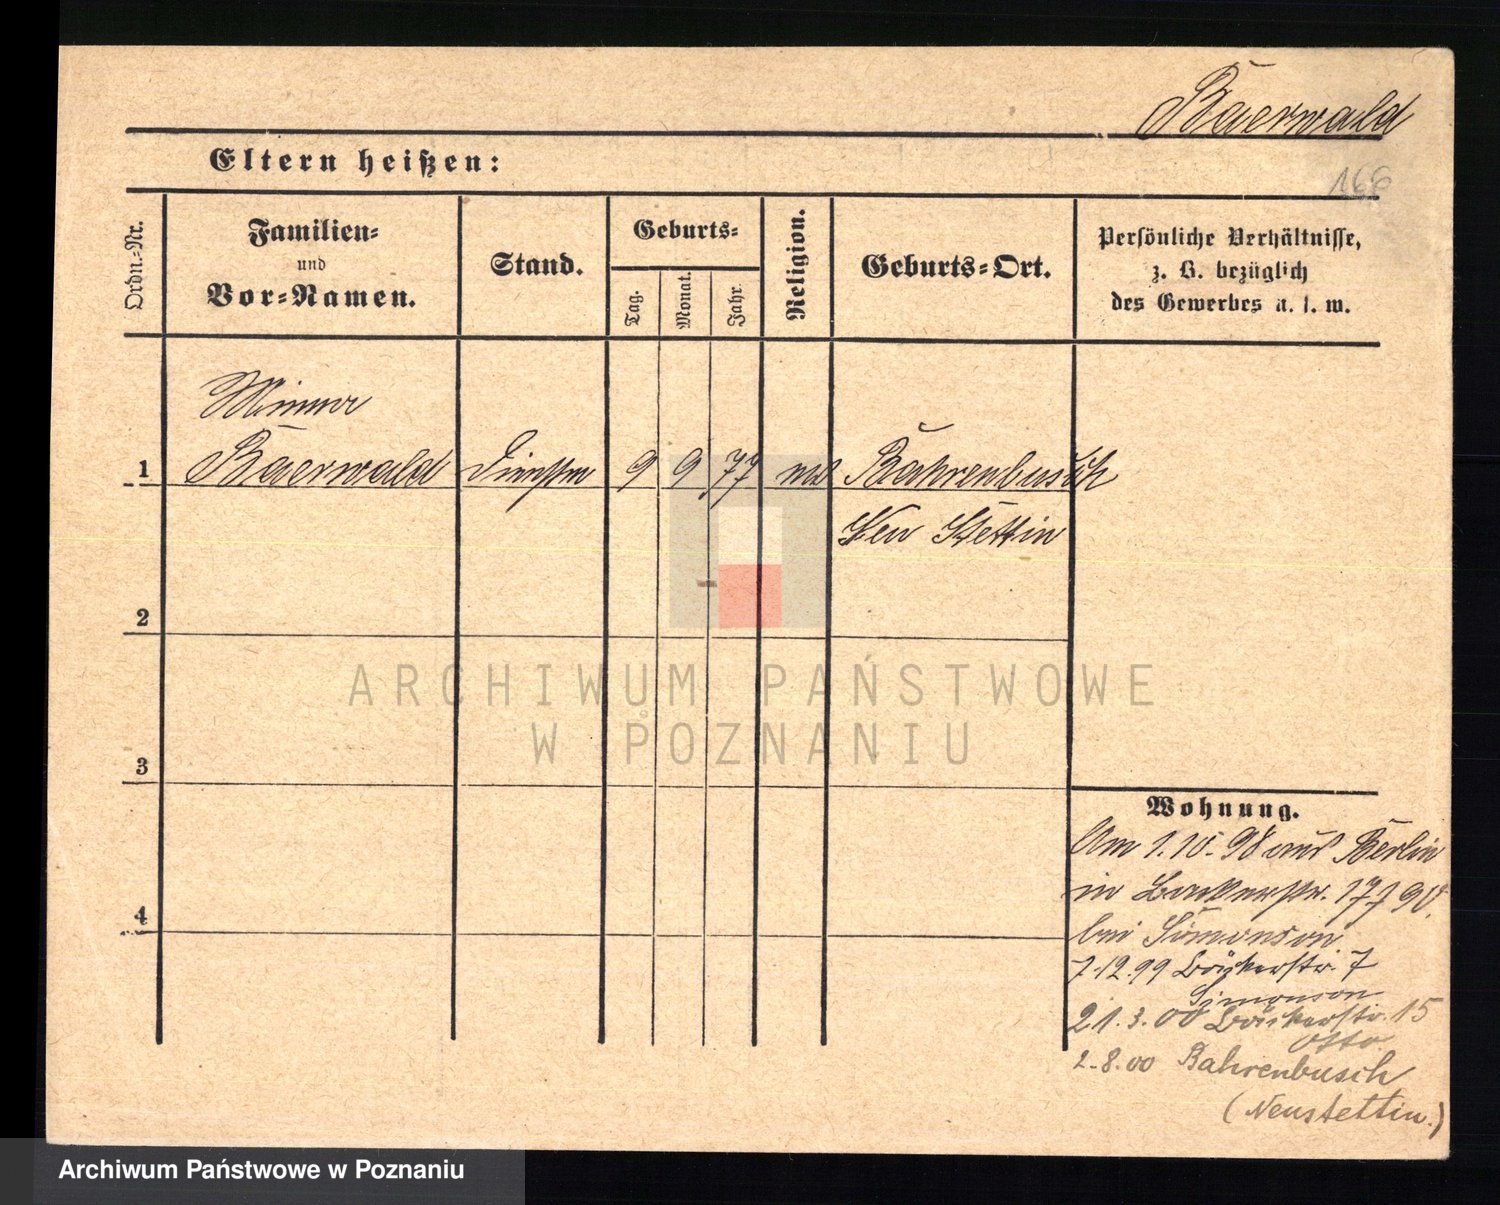 Baerwald
Eltern heißen:
166
Ordn.-Nr.
Familien-
und
Vor-Namen.
Stand.
Geburts-
Tag.
Monat.
Jahr.
Religion.
Geburts-Ort.
Persönliche Verhältnisse,
z. B. bezüglich
des Gewerbes u. s. w.
Minna
1 Baerwald 9 9 77 Bahrenbusch
Neu Stettin
2
3
4
Wohnung.
Am 1.10.98 aus Berlin
in
bei Simonson
7.12.99 Bäckerstr. 7
Simonson
21.3.00 Bäckerstr. 15
Otto
2.8.00 Bahrenbusch
(Neustettin.)
ARCHIWUM PAŃSTWOWE
W POZNANIU
Archiwum Państwowe w Poznaniu